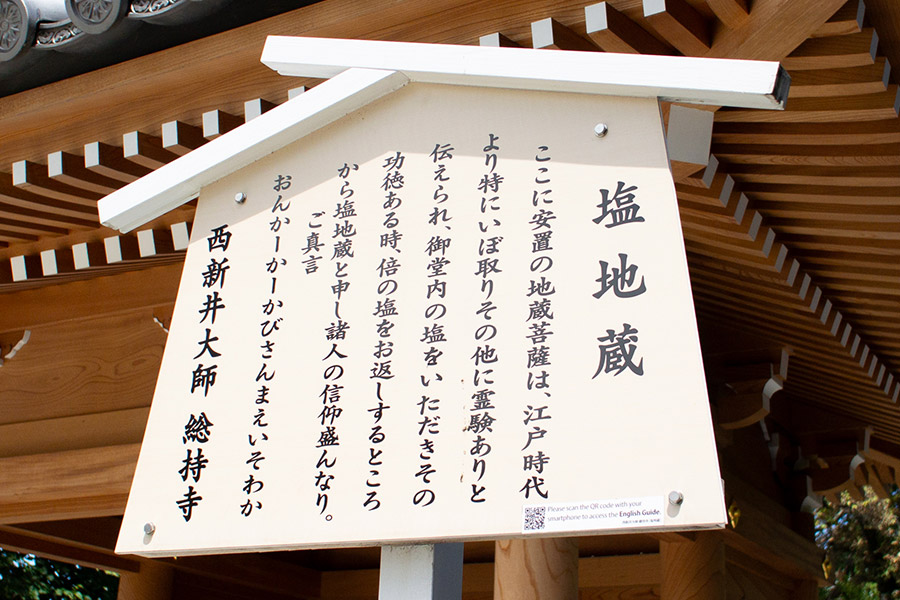 塩地蔵
ここに安置の地蔵菩薩は、江戸時代
より特にいぼ取りその他に霊験ありと
伝えられ、御堂内の塩をいただきその
功徳ある時、倍の塩をお返しするところ
から塩地蔵と申し諸人の信仰盛んなり。
ご真言
おんかーかーかびさんまえいそわか
西新井大師 総持寺
Please scan the QR code with your
smartphone to access the English Guide.